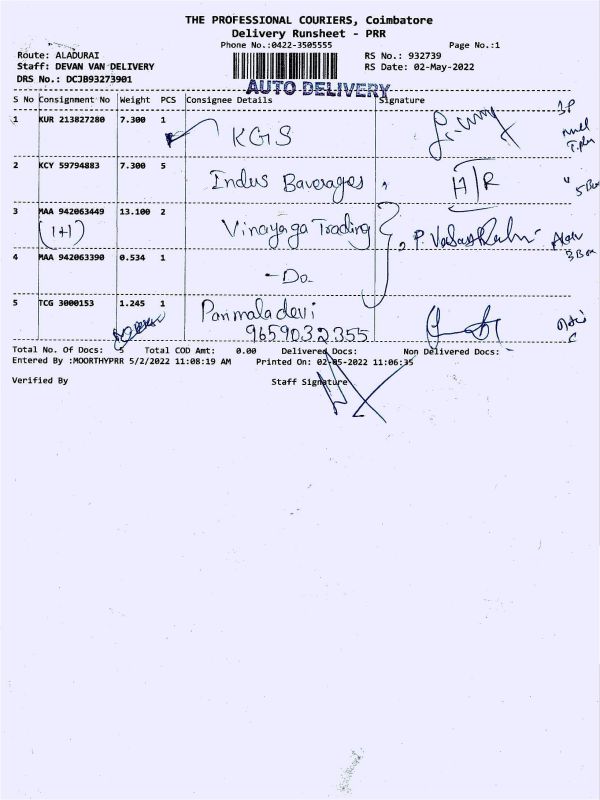 THE PROFESSIONAL COURIERS, Coimbatore
Delivery Runsheet - PRR
Phone No.:0422-3505555 Page No.:1
Route: ALADURAI RS No.: 932739
Staff: DEVAN VAN DELIVERY RS Date: 02-May-2022
DRS No.: DCJB93273901
AUTO DELIVERY
S No Consignment No Weight PCS Consignee Details Signature
1 KUR 213827280 7.300 1 KGS
2 KCY 59794883 7.300 5 Indus Baverages, 5 Box
3 MAA 942063449 13.100 2 Vinayaga Trading
(1+1)
4 MAA 942063390 0.534 1 -Do- 3 Box
5 TCG 3000153 1.245 1 Parimaladevi
9659032355
Total No. Of Docs: 5 Total COD Amt: 0.00 Delivered Docs: Non Delivered Docs:
Entered By :MOORTHYPRR 5/2/2022 11:08:19 AM Printed On: 02-05-2022 11:06:35
Verified By Staff Signature